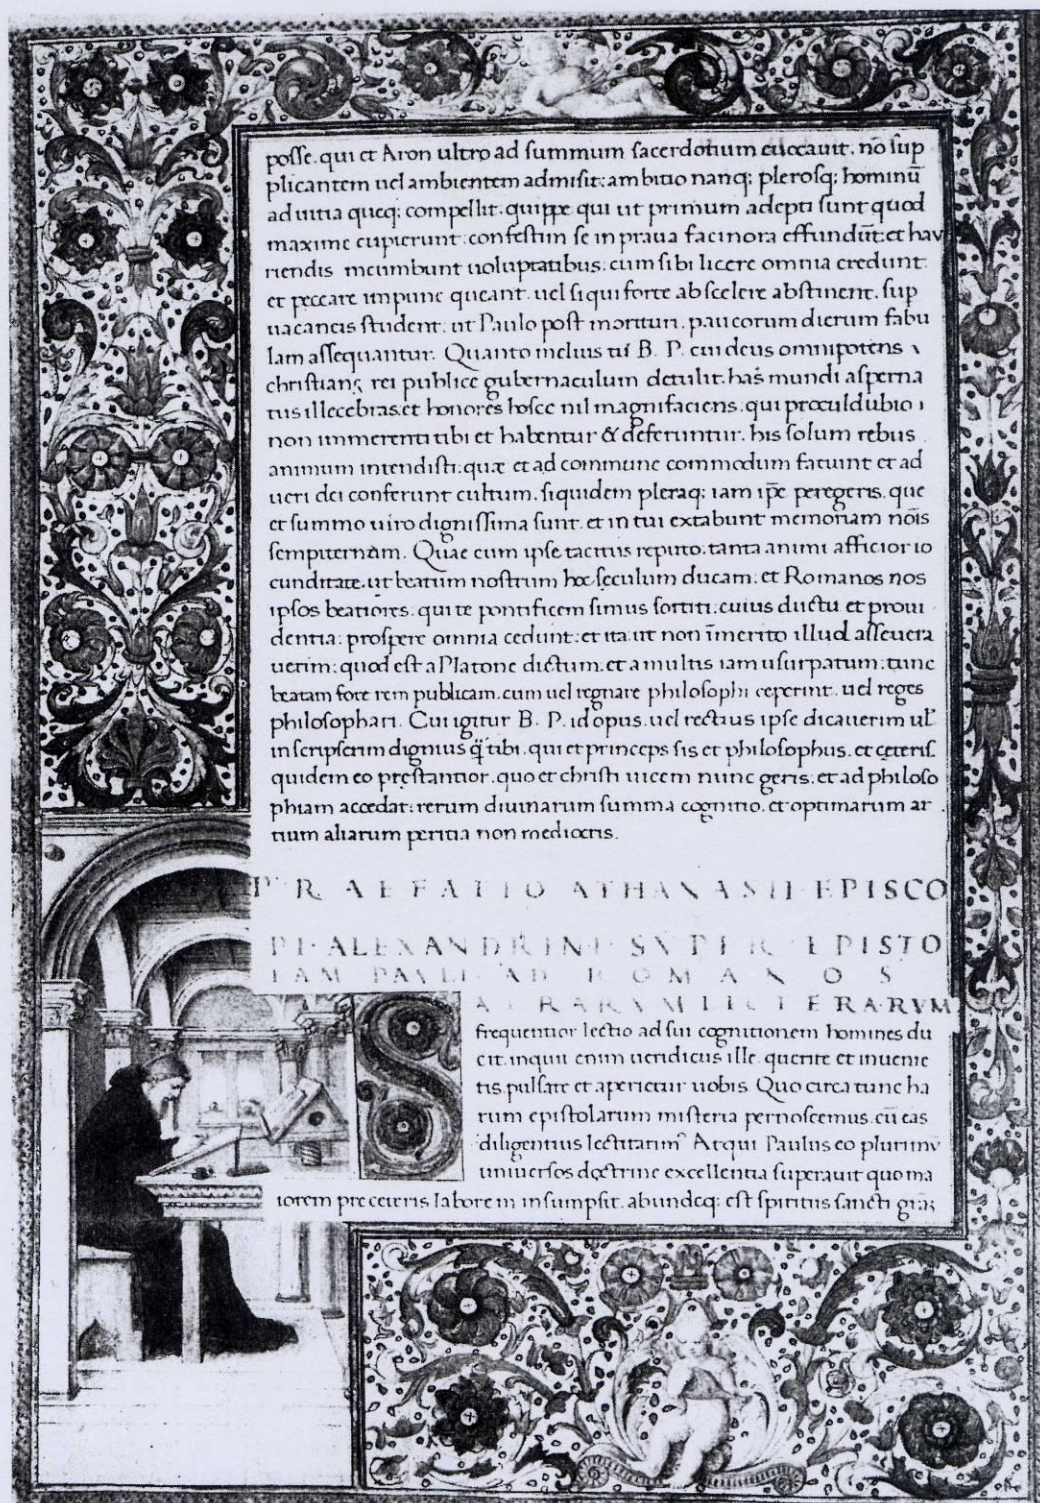 posse. qui et Aron ultro ad summum sacerdotium euocauit. nō sup
plicantem uel ambientem admisit: ambitio nanq; plerosq; hominū
ad uitia queq; compellit. quippe qui ut primum adepti sunt quod
maxime cupierunt: confestim se in praua facinora effundūt: et hau
riendis incumbunt uoluptatibus: cum sibi licere omnia credunt:
et peccare impune queant. uel si qui forte ab scelere abstinent. sup
uacaneis student: ut Paulo post morituri. paucorum dierum fabu
lam assequantur. Quanto melius tu B. P. cui deus omnipotens
christianę rei publice gubernaculum detulit. has mundi asperna
tus illecebras. et honores hosce nil magni faciens. qui procul dubio
non immerenti tibi et habentur & deferuntur. his solum rebus
animum intendisti. quæ et ad commune commodum faciunt et ad
ueri dei conferunt cultum. siquidem pleraq; iam ip̄e peregeris. que
et summo uiro dignissima sunt. et in tui extabunt memoriam nōīs
sempiternam. Quae cum ipse tacitus reputo: tanta animi afficior io
cunditate. ut beatum nostrum hoc seculum ducam: et Romanos nos
ipsos beatiores. qui te pontificem simus sortiti: cuius ductu et proui
dentia: prospere omnia cedunt: et ita ut non īmerito illud asseuera
uerim: quod est a Platone dictum. et a multis iam usurpatum: tunc
beatam fore rem publicam. cum uel regnare philosophi ceperint. uel reges
philosophari. Cui igitur B. P. id opus. uel rectius ipse dicauerim ul̄
inscripserim dignius q̄ tibi. qui et princeps sis et philosophus. et cęteris
quidem eo pręstantior. quo et christi uicem nunc geris: et ad philoso
phiam accedat: rerum diuinarum summa cognitio. et optimarum ar
tium aliarum peritia non mediocris.
PRAEFATIO ATHANASII EPISCO
PI ALEXANDRINI SVPER EPISTO
LAM PAVLI AD ROMANOS
SACRARVM LICTERARVM
frequentior lectio ad sui cognitionem homines du
cit. inquit enim ueridicus ille. querite et inuenie
tis. pulsate et aperietur uobis. Quo circa tunc ha
rum epistolarum misteria pernoscemus. cū eas
diligentius lectitarimꝰ. Atqui Paulus eo plurimū
uniuersos doctrine excellentia superauit quo ma
iorem pre ceteris laborem insumpsit. abundeq; est spiritus sancti grām